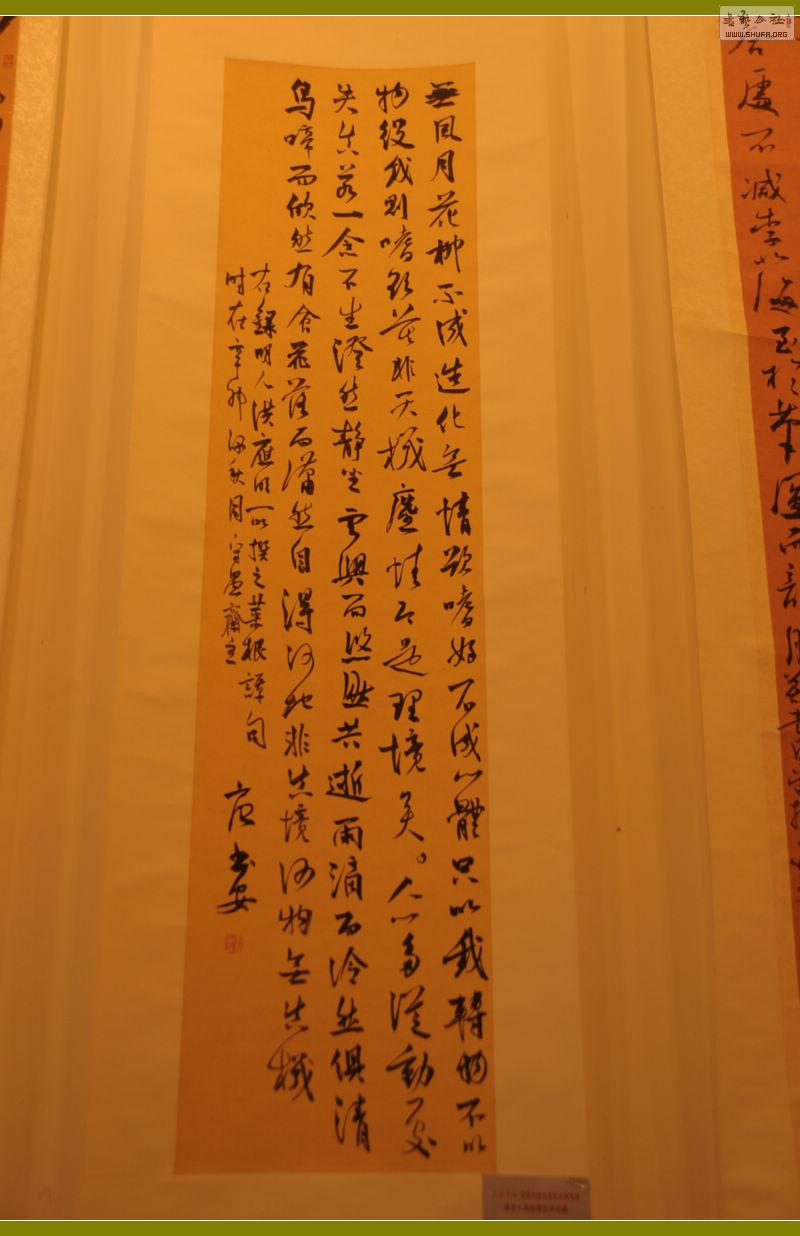 無風月花柳不成造化無情欲嗜好不成心體只以我轉物不以
物役我則嗜欲莫非天機塵情即是理境矣。人心多從動處
失真若一念不生澄然靜坐雲興而悠然共逝雨滴而冷然俱清
鳥啼而欣然有會花落而瀟然自得何地非真境何物無真機
右錄明人洪應明所撰之菜根譚句
時在辛卯深秋月守愚齋主
書安
處不減李北海至於筆運而言
书艺公社
WWW.SHUFA.ORG